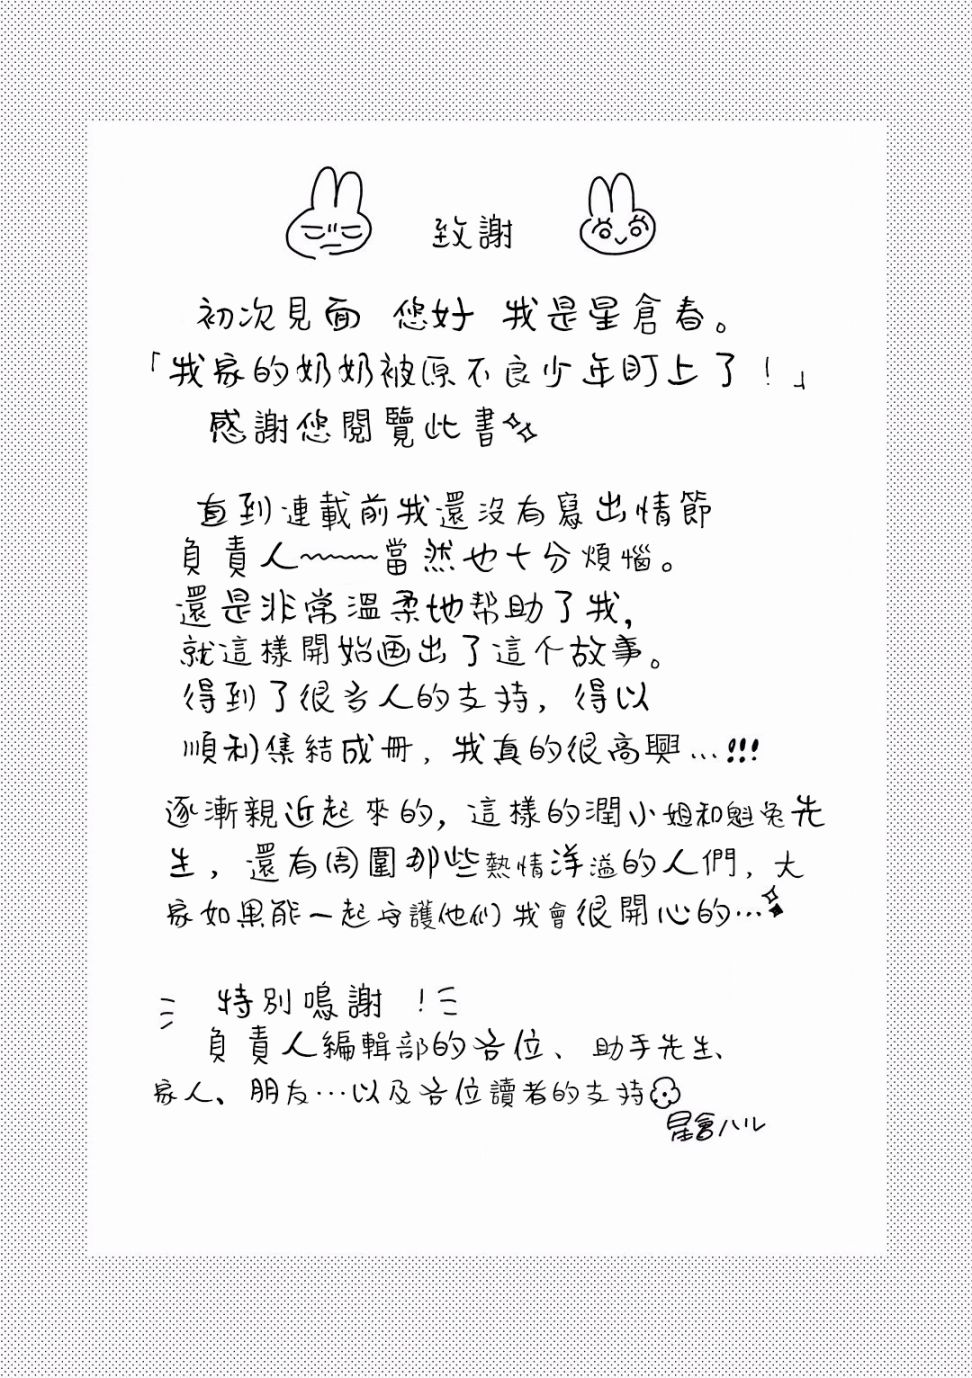 致謝
初次見面 您好 我是星倉春。
「我家的奶奶被原不良少年盯上了！」
感謝您閱覽此書
直到連載前我還沒有寫出情節
負責人~~~~當然也十分煩惱。
還是非常溫柔地帮助了我，
就這樣開始画出了這个故事。
得到了很多人的支持，得以
順利集結成冊，我真的很高興…!!!
逐漸親近起來的，這樣的潤小姐和魁兔先
生，還有周圍那些熱情洋溢的人們，大
家如果能一起守護他们我會很開心的…
特別鳴謝！
負責人編輯部的各位、助手先生、
家人、朋友…以及各位讀者的支持
星倉ハル